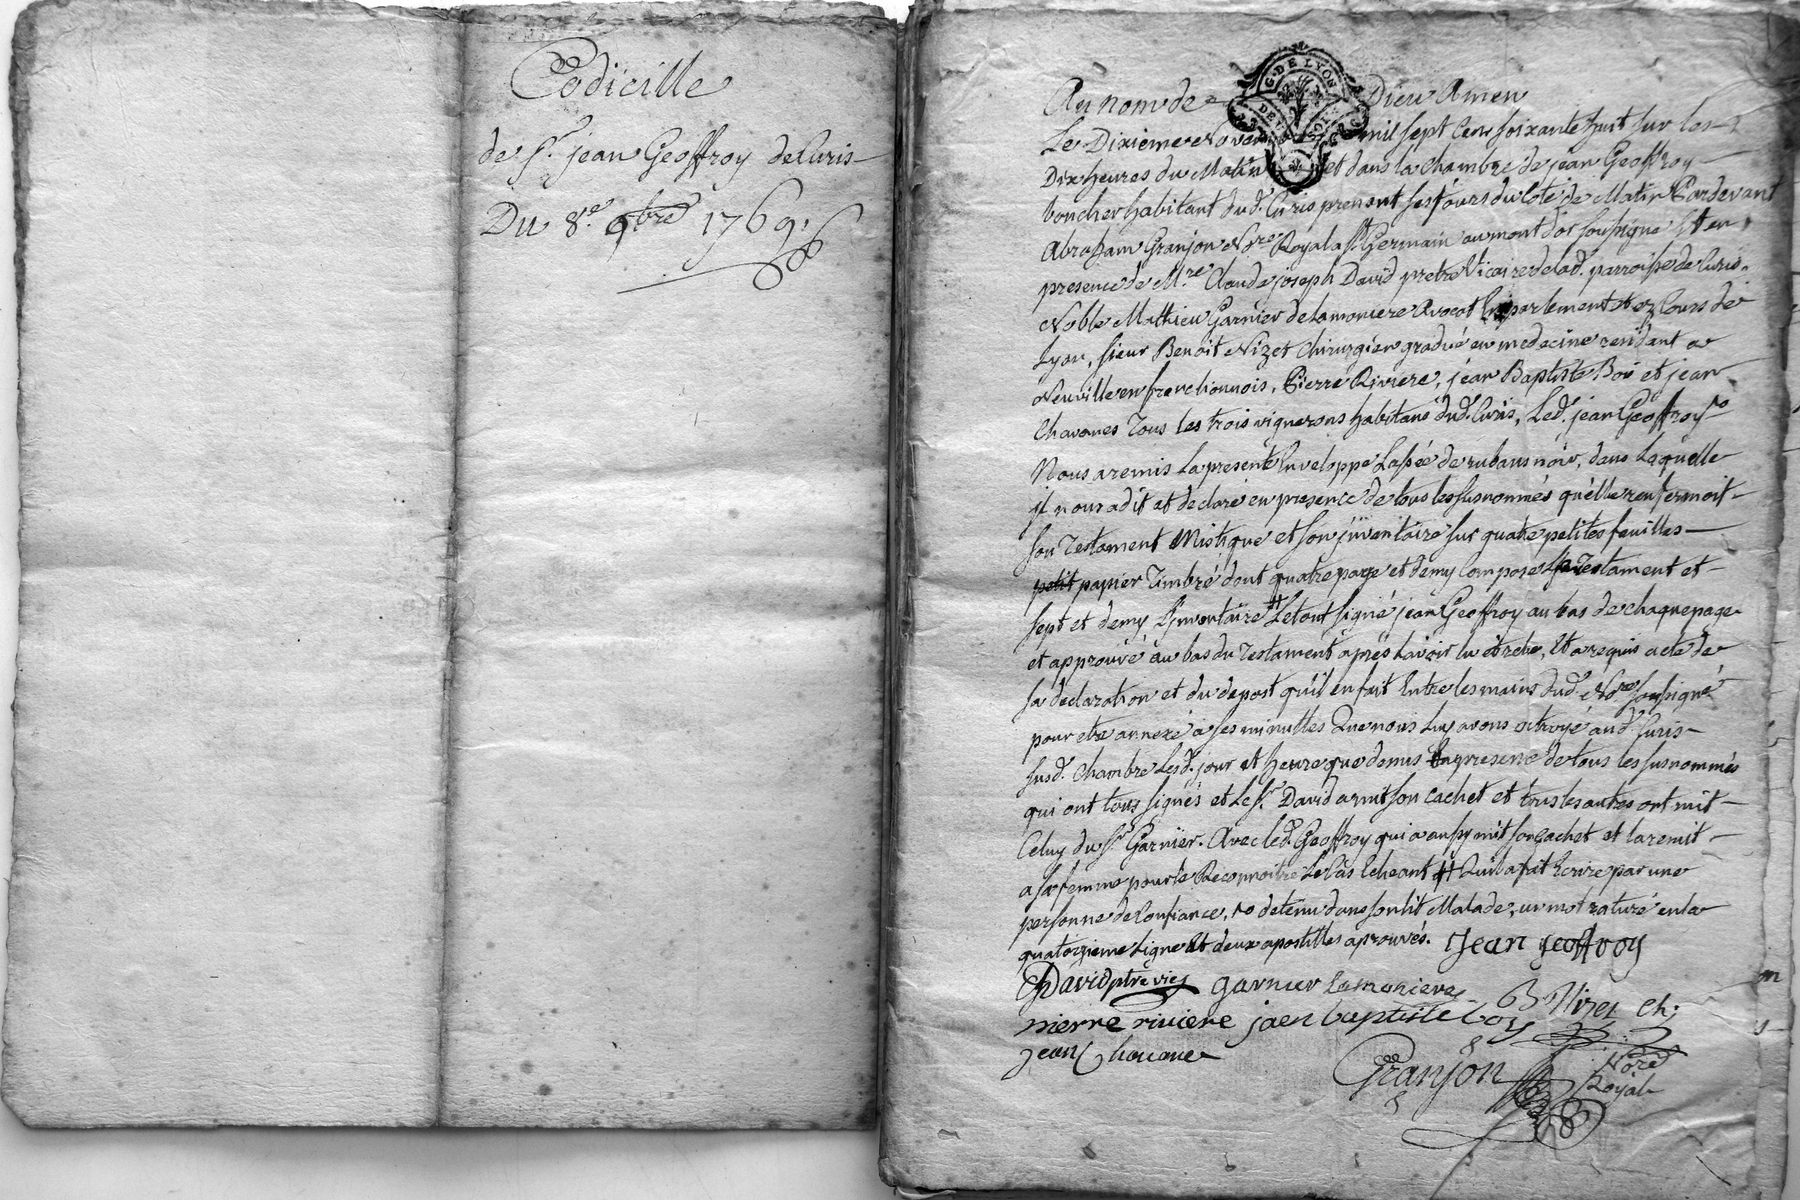 Codicille
de Sr. jean Geoffroy de Curis
Du 8.e 9bre 1769.
G. DE LYON
DEUX SOLS
Au nom de Dieu Amen
Le Dixieme Novem mil sept Cens soixante huit sur les
Dix heures du Matin et dans la chambre de jean Geoffroy
boucher habitant dud. Curis prenant ses jours du Coté de Matin Pardevant
Abraham Granjon Nore. Royal a St. Germain au mont d'or soussigné Et en
presence de Mre. Claude joseph David pretre Vicaire de lad. parroisse de Curis,
Noble Mathieu Garnier de lamoniere Avocat En parlement et ez Cours de
Lyon, sieur Benoit Nizet Chirurgien gradué en medecine residant a
Neuville en franclionnois, Pierre Riviere, jean Baptiste Boi et jean
Chavanes Tous les trois vignerons habitans dud. Curis, Led. jean Geoffroy ro
Nous a remis la presente Enveloppe Lassée de rubans noir, dans Laquelle
jl nous a dit et declaré en presence de tous les susnommés qu'elle renfermoit
son Testament Mistique et son jnventaire sur quatre petites feuilles
petit papier Timbré dont quatre page et demy Compose le Testament et
sept et demy L'jnventaire # Le tout signé jean Geoffroy au bas de chaque page
et approuvé au bas du Testament après L'avoir lu et relu, Et a requis acte de
sa declaration et du depost qu'il en fait Entre les mains dud. Nore soussigné
pour etre annexé a ses minuttes Que nous Luy avons octroyé aud. Curis
susd. Chambre Lesd. jour et heure que dessus En presence de tous les susnommés
qui ont tous signés et Le Sr. David a mit son Cachet et tous les autres ont mit
Celuy du Sr. Garnier. Avec led. Geoffroy qui a aussy mit son Cachet et la remit
a sa femme pour le Reconnoitre Le Cas Echeant # Qu'il a fait Ecrire par une
personne de Confiance, ro detenu dans son lit Malade, un mot raturé en la
quatorzieme Ligne Et deux apostilles aprouvés. Jean geoffroy
David ptre vic garnier Lamoniere B Nizet ch:
pierre riviere jaen baptiste boy
jean Chavane
Granjon Nore
Royal